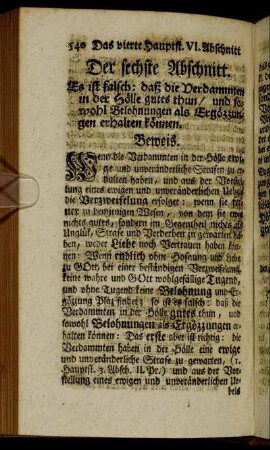 540 Das vierte Hauptst. VI. Abschnitt
Der sechste Abschnitt.
Es ist falsch: daß die Verdammten
in der Hölle gutes thun/ und so-
wohl Belohnungen als Ergözzun-
gen erhalten können.
Beweis.
Wenn die Verdammten in der Hölle ewi-
ge und unveränderliche Strafen zu er-
dulten haben, und aus der Vorstel-
lung eines ewigen und unveränderlichen Uebels
die Verzweifelung erfolget: wenn sie ferner
zu demjenigen Wesen, von dem sie ewig
nichts gutes, sondern im Gegentheil nichts als
Unglük, Strafe und Verderben zu gewarten ha-
ben, weder Liebe noch Vertrauen haben kön-
nen: Wenn endlich ohne Hofnung und Liebe
zu GOtt, bei einer beständigen Verzweifelung,
keine wahre und GOtt wohlgefällige Tugend,
und ohne Tugend keine Belohnung und Er-
gözzung Plaz findet: so ist es falsch: daß die
Verdammten in der Hölle gutes thun, und
sowohl Belohnungen als Ergözzungen er-
halten können: Das erste aber ist richtig: die
Verdammten haben in der Hölle eine ewige
und unveränderliche Strafe zu gewarten, (1.
Hauptst. 3. Absch. II. Pr.) und aus der Vor-
stellung eines ewigen und unveränderlichen Ue-
bels